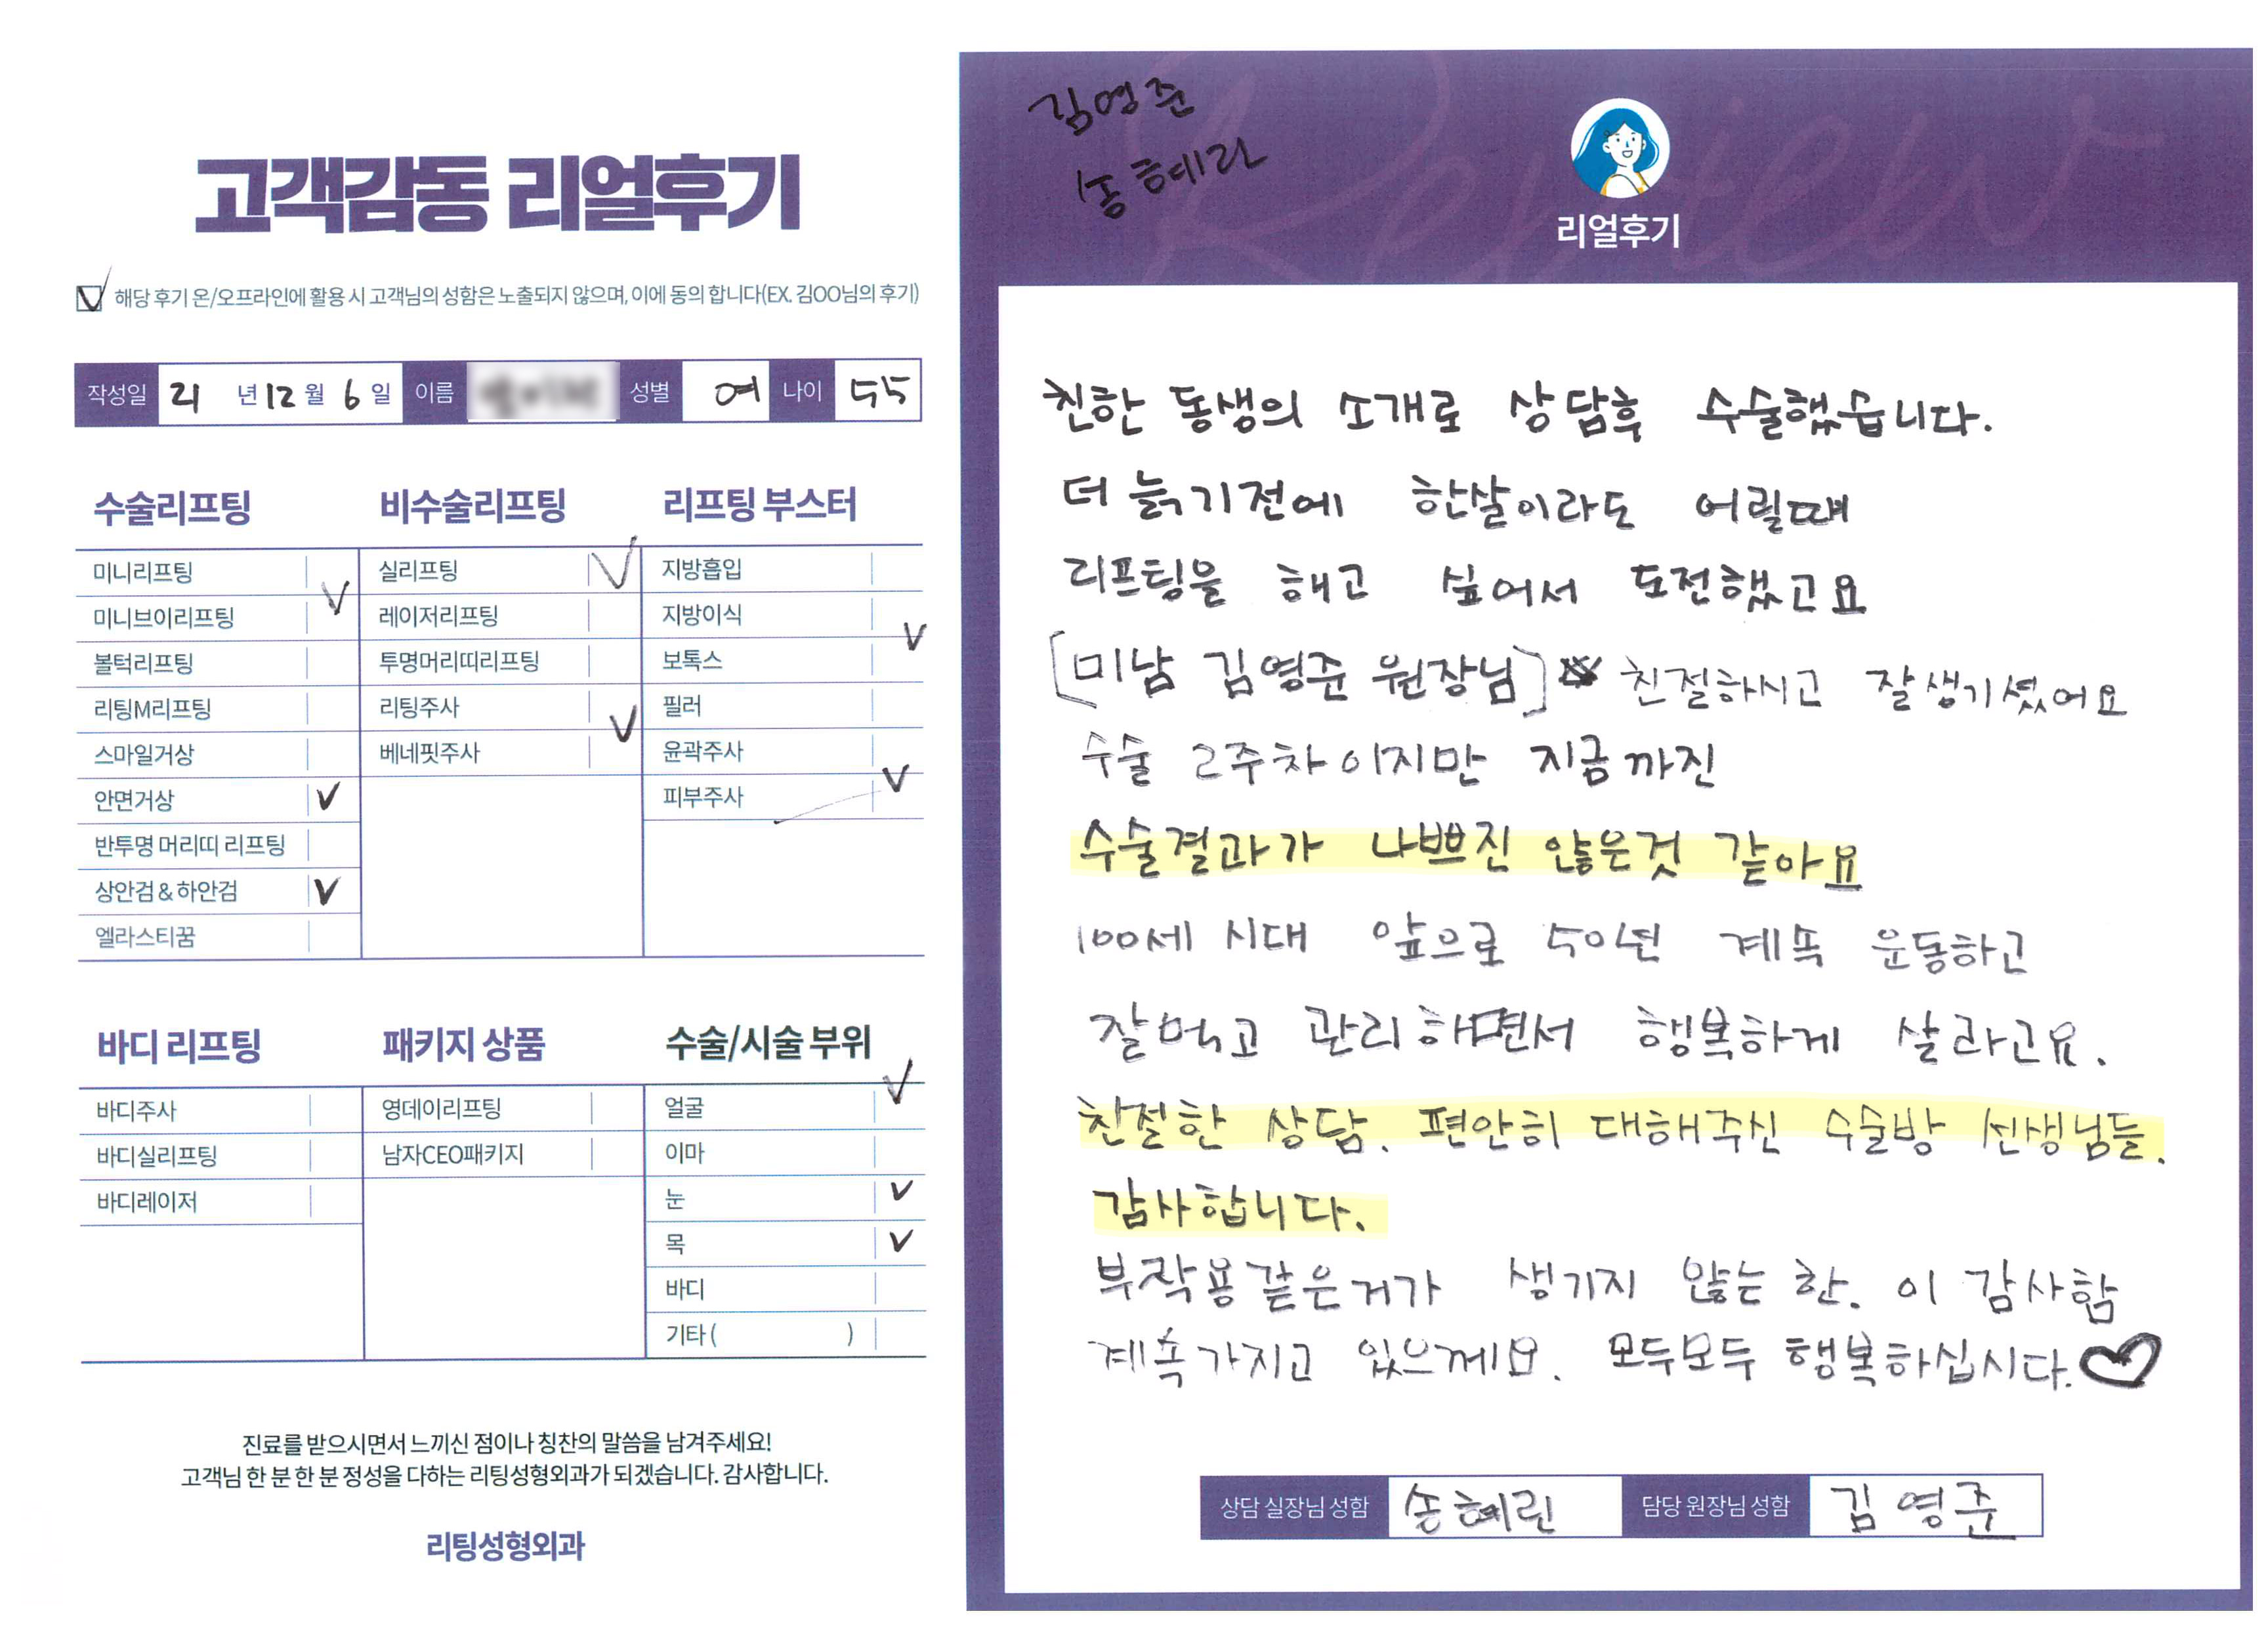 고객감동 리얼후기
해당 후기 온/오프라인에 활용 시 고객님의 성함은 노출되지 않으며, 이에 동의 합니다(EX. 김OO님의 후기)
작성일 21 년 12 월 6 일 이름 성별 여 나이 55
수술리프팅
미니리프팅
미니브이리프팅
볼턱리프팅
리팅M리프팅
스마일거상
안면거상
반투명 머리띠 리프팅
상안검 & 하안검
엘라스티꿈
비수술리프팅
실리프팅
레이저리프팅
투명머리띠리프팅
리팅주사
베네핏주사
리프팅 부스터
지방흡입
지방이식
보톡스
필러
윤곽주사
피부주사
바디 리프팅
바디주사
바디실리프팅
바디레이저
패키지 상품
영데이리프팅
남자CEO패키지
수술/시술 부위
얼굴
이마
눈
목
바디
기타 ( )
진료를 받으시면서 느끼신 점이나 칭찬의 말씀을 남겨주세요!
고객님 한 분 한 분 정성을 다하는 리팅성형외과가 되겠습니다. 감사합니다.
리팅성형외과
김영준
송혜라
Review
리얼후기
친한 동생의 소개로 상담후 수술했습니다.
더 늙기전에 한살이라도 어릴때
리프팅을 해고 싶어서 도전했고요
[미남 김영준 원장님] 친절하시고 잘생기셨어요
수술 2주차이지만 지금까진
수술결과가 나쁘진 않은것 같아요
100세 시대 앞으로 50년 계속 운동하고
잘먹고 관리하면서 행복하게 살라고요.
친절한 상담. 편안히 대해주신 수술방 선생님들.
감사합니다.
부작용같은거가 생기지 않는 한. 이 감사함
계속가지고 있으께요. 모두모두 행복하십시다.
상담 실장님 성함 송혜린 담당 원장님 성함 김영준